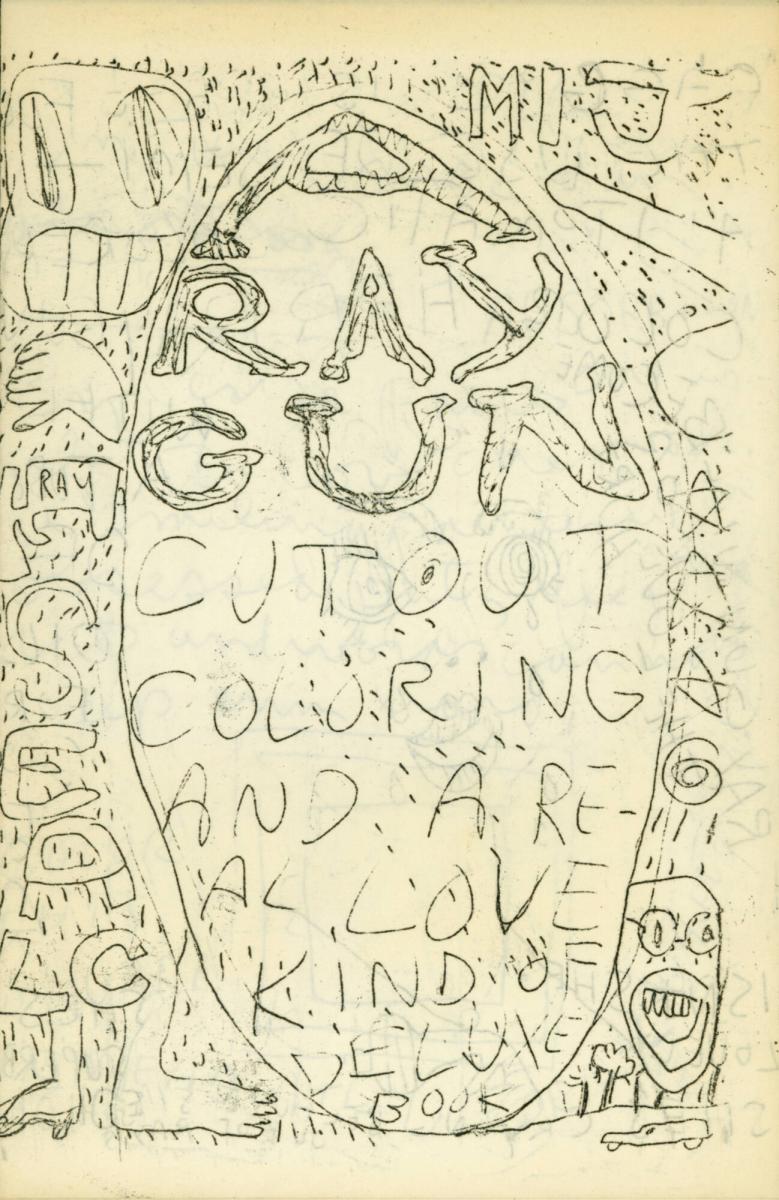 MIJ
A
RAY
GUN
CUTOUT
COLORING
AND A RE-
AL LOVE
KIND OF
DELUXE
BOOK
RAY